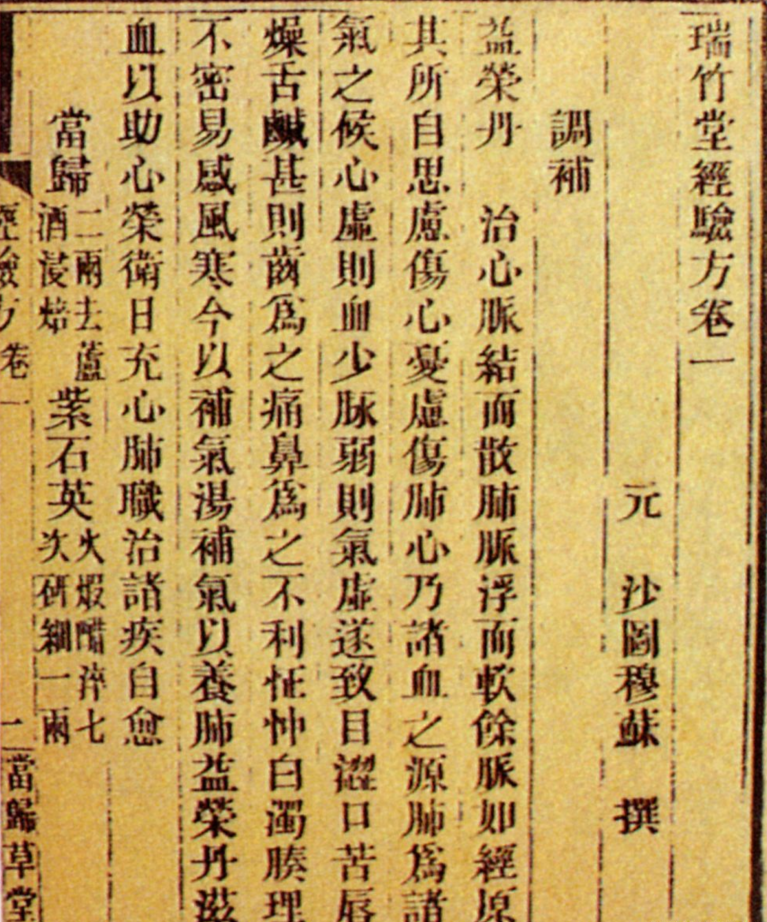 瑞竹堂經驗方卷一
元 沙圖穆蘇 撰
調補
益榮丹 治心脈結而散肺脈浮而軟餘脈如經原
其所自思慮傷心憂慮傷肺心乃諸血之源肺爲諸
氣之候心虛則血少脉弱則氣虛遂致目澀口苦唇
燥舌鹹甚則齒爲之痛鼻爲之不利怔忡白濁腠理
不密易感風寒今以補氣湯補氣以養肺益榮丹滋
血以助心榮衛日充心肺職治諸疾自愈
當歸 二兩去蘆
酒浸焙 紫石英 火煆醋淬七
次研細一兩
經驗方 卷一 二 當歸草堂